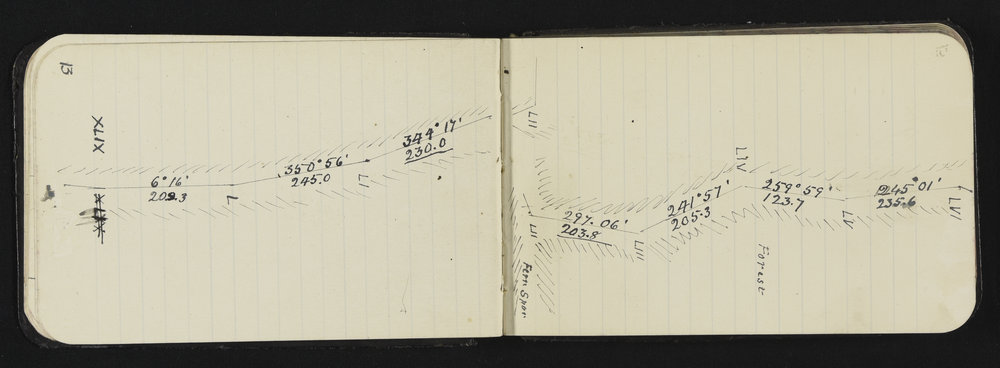 13
XLIX
6°16'
202.3
L
350°56'
245.0
LI
344°17'
230.0
LII
LII
Fern Spur
297.06'
203.8
LIII
241°57'
205.3
LIV
259°59'
123.7
Forest
LV
245°01'
235.6
LVI